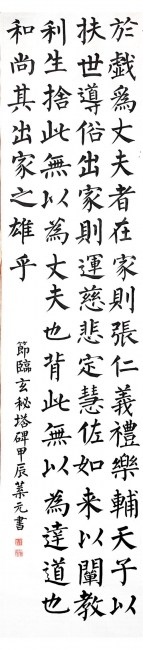 於戲為丈夫者在家則張仁義禮樂輔天子以
扶世導俗出家則運慈悲定慧佐如来以闡教
利生捨此無以為丈夫也背此無以為達道也
和尚其出家之雄乎
節臨玄秘塔碑甲辰葉元書